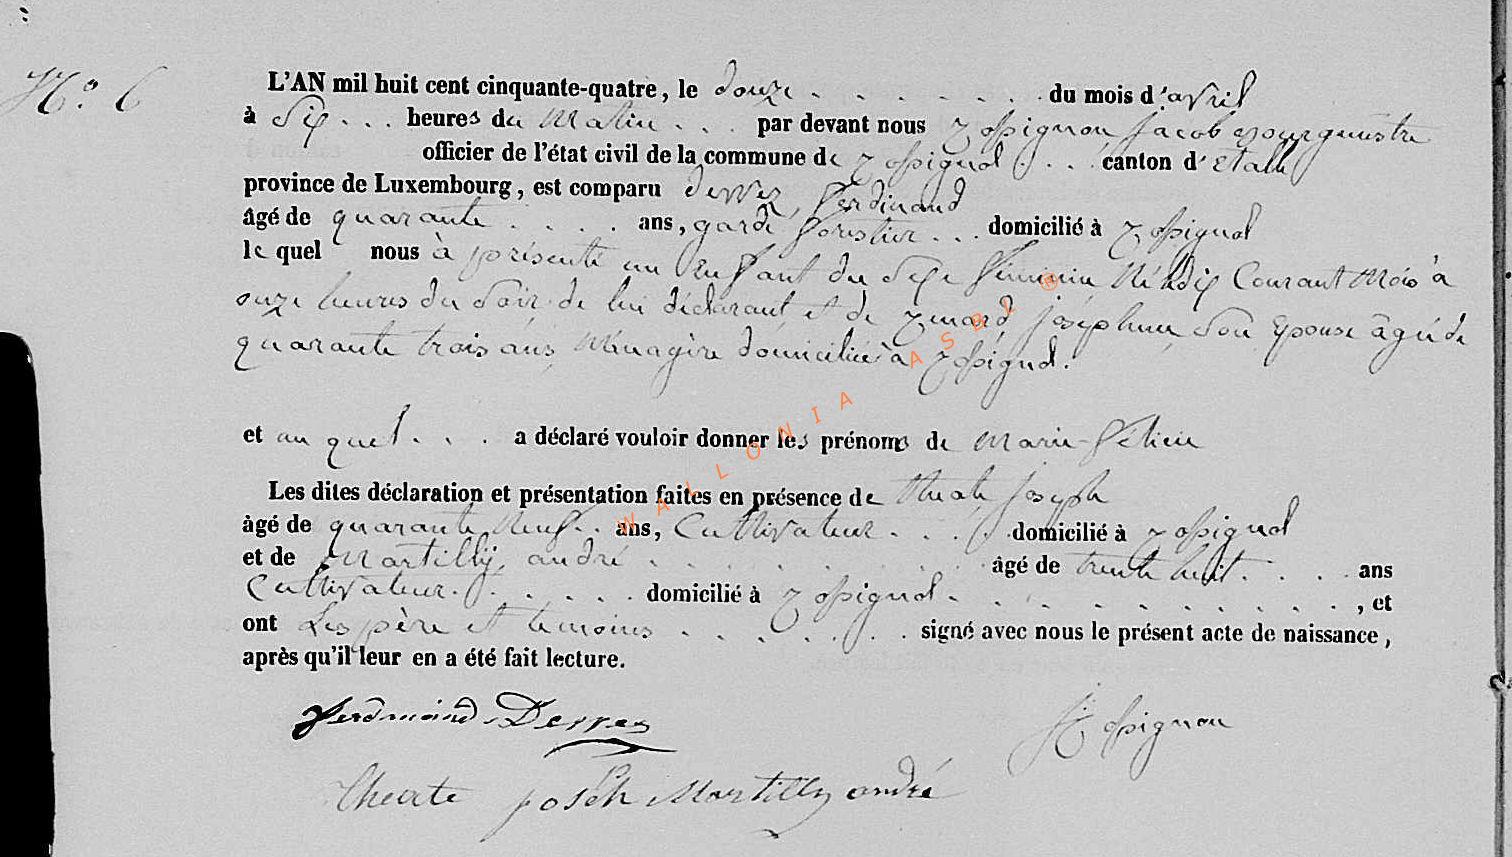 N.o 6
L'AN mil huit cent cinquante-quatre, le douze . . . . . . du mois d'avril
à Six . . . heures du Matin . . . par devant nous Rossignon Jacob Bourgmestre
officier de l'état civil de la commune de Rossignol . . . canton d'Etalle
province de Luxembourg, est comparu Derrez, Ferdinand
âgé de quarante . . . . ans, garde forestier . . . domicilié à Rossignol
le quel nous à présenté un Enfant du Sexe féminin Né ledix Courant Mois à
onze heures du Soir de lui déclarant et de Josephine Son Epouse âgée de
quarante trois ans, Ménagère domiciliée à Rossignol.
et au quel . . . a déclaré vouloir donner les prénoms de Marie-Félicie
Les dites déclaration et présentation faites en présence de Joseph
âgé de quarante Neuf . . ans, Cultivateur . . . . domicilié à Rossignol
et de Martilly, andré . . . . . . . . . . âgé de trente huit . . . . ans
Cultivateur . . . . . . domicilié à Rossignol . . . . . . . . . . . , et
ont Les père et temoins . . . . . . . signé avec nous le présent acte de naissance,
après qu'il leur en a été fait lecture.
Ferdinand Derrez
J Rossignon
Theate joséh Martilly andré
WALLONIA ASBL ®